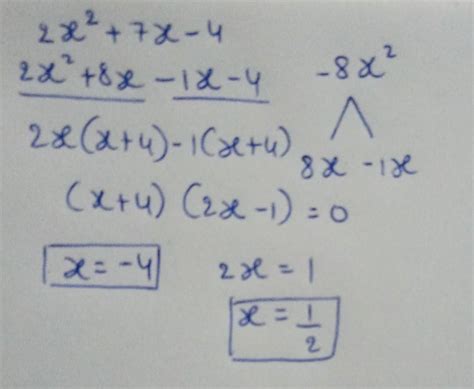 2x² + 7x - 4
2x² + 8x - 1x - 4
-8x²
2x(x+4) - 1(x+4)
8x -1x
(x+4) (2x - 1) = 0
x = -4
2x = 1
x = 1/2